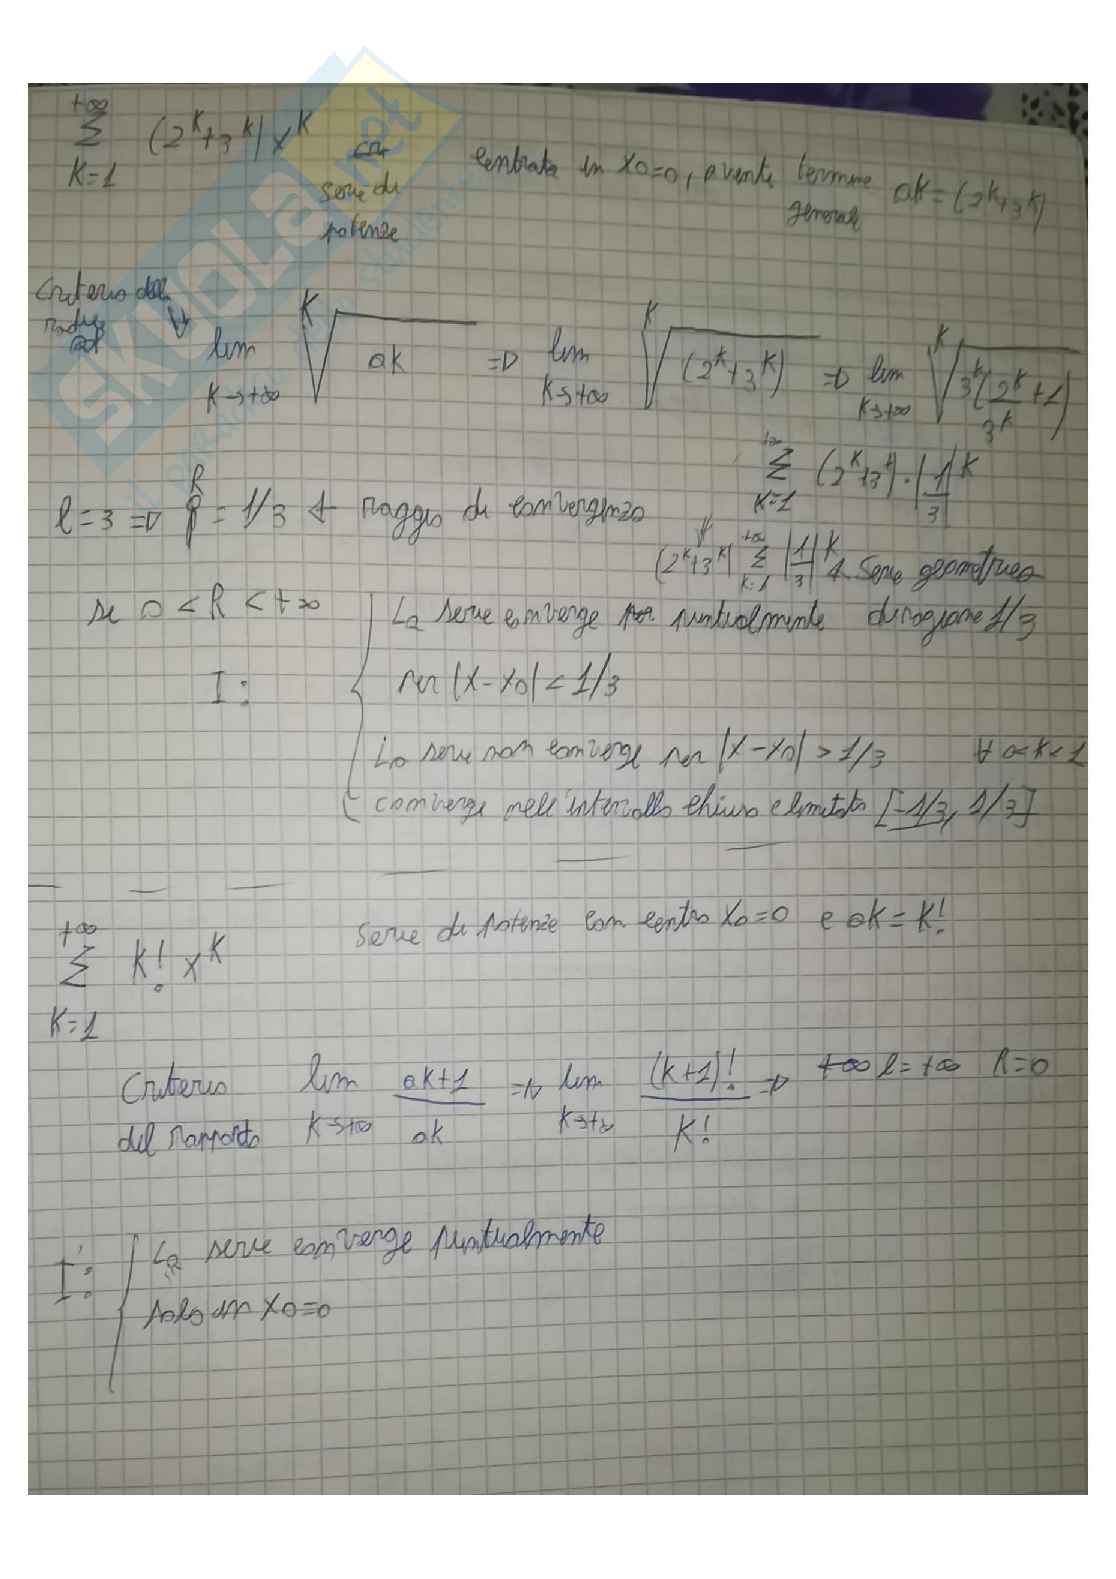 +∞
Σ (2^K+3^K) x^K
K=1
serie di potenze
centrata in x0=0, avente termine generale ak = (2^K+3^K)
Criterio della radice
lim K→+∞ K√ak ⇒ lim K→+∞ K√(2^K+3^K) ⇒ lim K→+∞ K√3^K(2^K/3^K +1)
+∞ Σ K=1 (2^K+3^K)·|1/3|^K
l=3 ⇒ R = 1/3 ← raggio di convergenza
(2^K+3^K) +∞ Σ K=1 |1/3|^K ← serie geometrica
di ragione 1/3
se 0 < R < +∞
La serie converge puntualmente
I:
per |x-x0| < 1/3
La serie non converge per |x-x0| > 1/3 ∀ 0<k<1
converge nell'intervallo chiuso e limitato [-1/3, 1/3]
+∞
Σ K! x^K
K=1
serie di potenze con centro x0=0 e ak = K!
Criterio del rapporto
lim K→+∞ ak+1/ak ⇒ lim K→+∞ (k+1)!/K! ⇒ +∞ l=+∞ R=0
I:
La serie converge puntualmente
solo in x0=0
SKUOLA.net